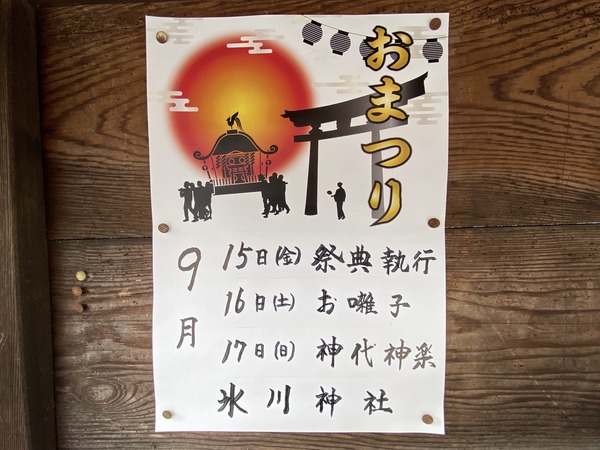 おまつり
9月
15日(金) 祭典執行
16日(土) お囃子
17日(日) 神代神楽
氷川神社